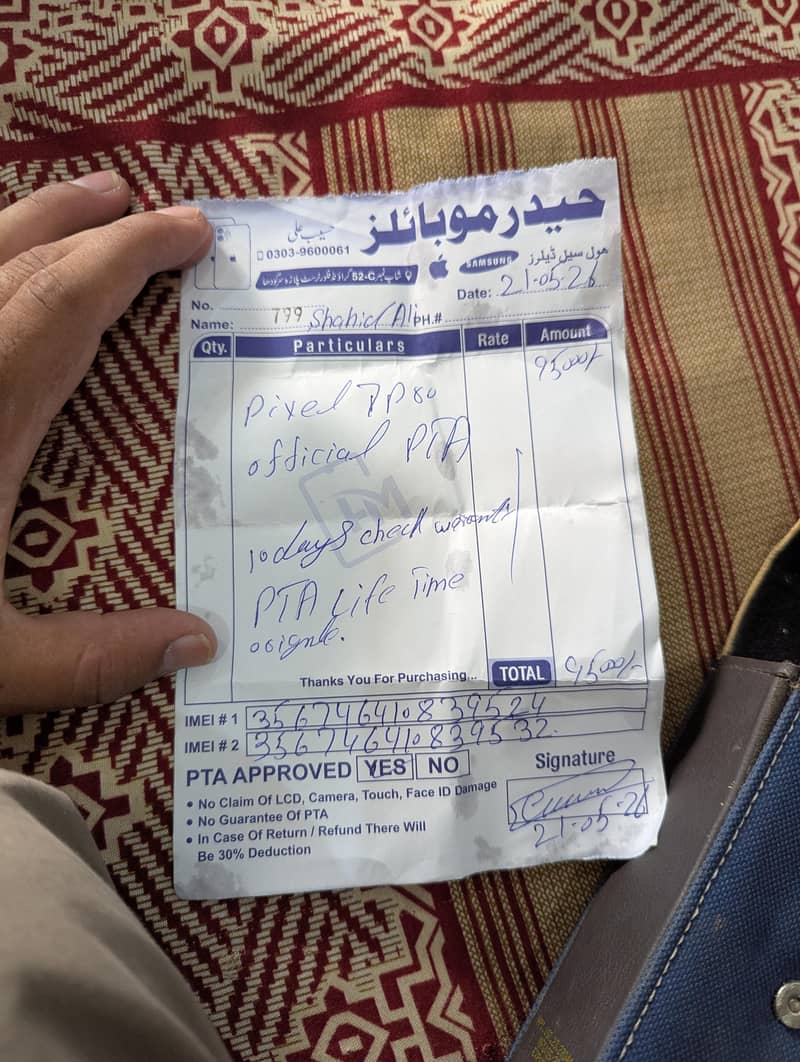 حیدر موبائلز
حبیب علی
0303-9600061
SAMSUNG
ہول سیل ڈیلرز
شاپ نمبر 52-C گراؤنڈ فلور ٹرسٹ پلازہ سرگودھا
Date: 21-05-26
No. 799
Name: Shahid Ali PH.#
Qty. Particulars Rate Amount
95000/-
Pixel 7P
official PTA
HM
10 days check warranty
PTA Life Time
Thanks You For Purchasing... TOTAL 95000/-
IMEI # 1 356746410839524
IMEI # 2 356746410839532
PTA APPROVED YES NO
Signature
• No Claim Of LCD, Camera, Touch, Face ID Damage
• No Guarantee Of PTA
• In Case Of Return / Refund There Will
Be 30% Deduction
21-05-26